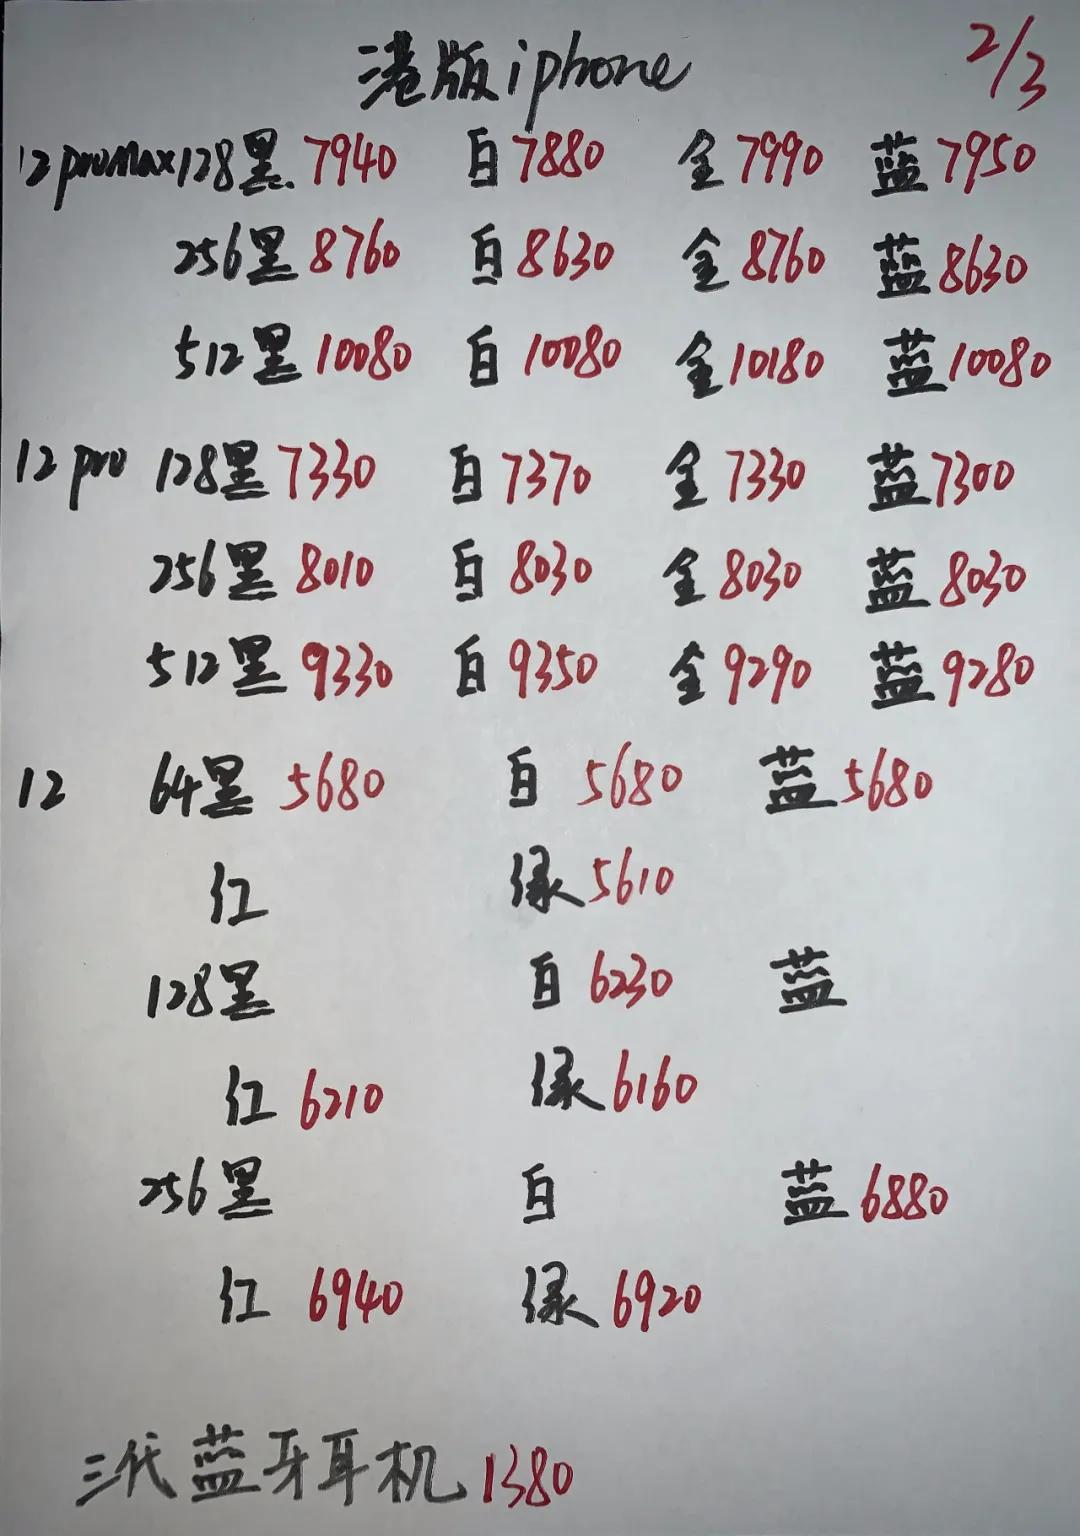 港版iphone 2/3
12promax128黑 7940 白7880 金7990 蓝7950
256黑8760 白8630 金8760 蓝8630
512黑10080 白10080 金10180 蓝10080
12 pro 128黑7330 白7370 金7330 蓝7300
256黑 8010 白 8030 金8030 蓝8030
512黑9330 白9350 金9290 蓝9280
12 64黑 5680 白 5680 蓝5680
红 绿5610
128黑 白6230 蓝
红 6210 绿6160
256黑 白 蓝6880
红 6940 绿6920
三代蓝牙耳机1380